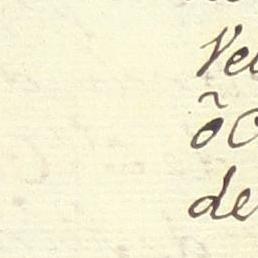 Ve
õC
de